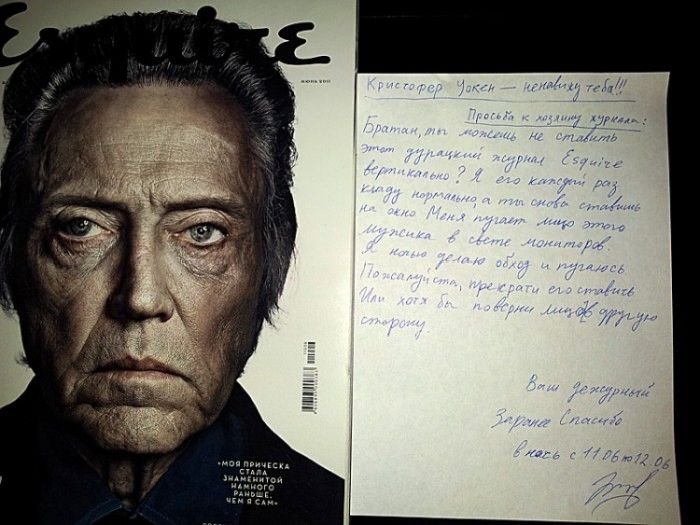 Esquire
ИЮНЬ 2011
«МОЯ ПРИЧЕСКА
СТАЛА
ЗНАМЕНИТОЙ
НАМНОГО
РАНЬШЕ,
ЧЕМ Я САМ»
Кристофер Уокен — ненавижу тебя!!!
Просьба к хозяину журнала:
Братан, ты можешь не ставить
этот дурацкий журнал Esquire
вертикально? Я его каждый раз
кладу нормально, а ты снова ставишь
на окно. Меня пугает лицо этого
мужика в свете мониторов.
Я ночью делаю обход и пугаюсь.
Пожалуйста, прекрати его ставить
Или хотя бы поверни лицом в другую
сторону.
Ваш дежурный
Заранее Спасибо
в ночь с 11.06 по 12.06